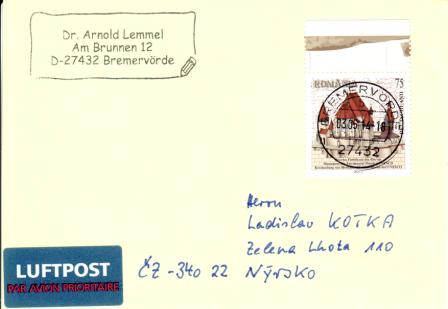 Dr. Arnold Lemmel
Am Brunnen 12
D-27432 Bremervörde
75
BREMERVÖRDE
03.05.14-18
27432
Herrn
Ladislav KOTKA
Zelena Lhota 110
ČZ-340 22 NÝRSKO
LUFTPOST
PAR AVION PRIORITAIRE